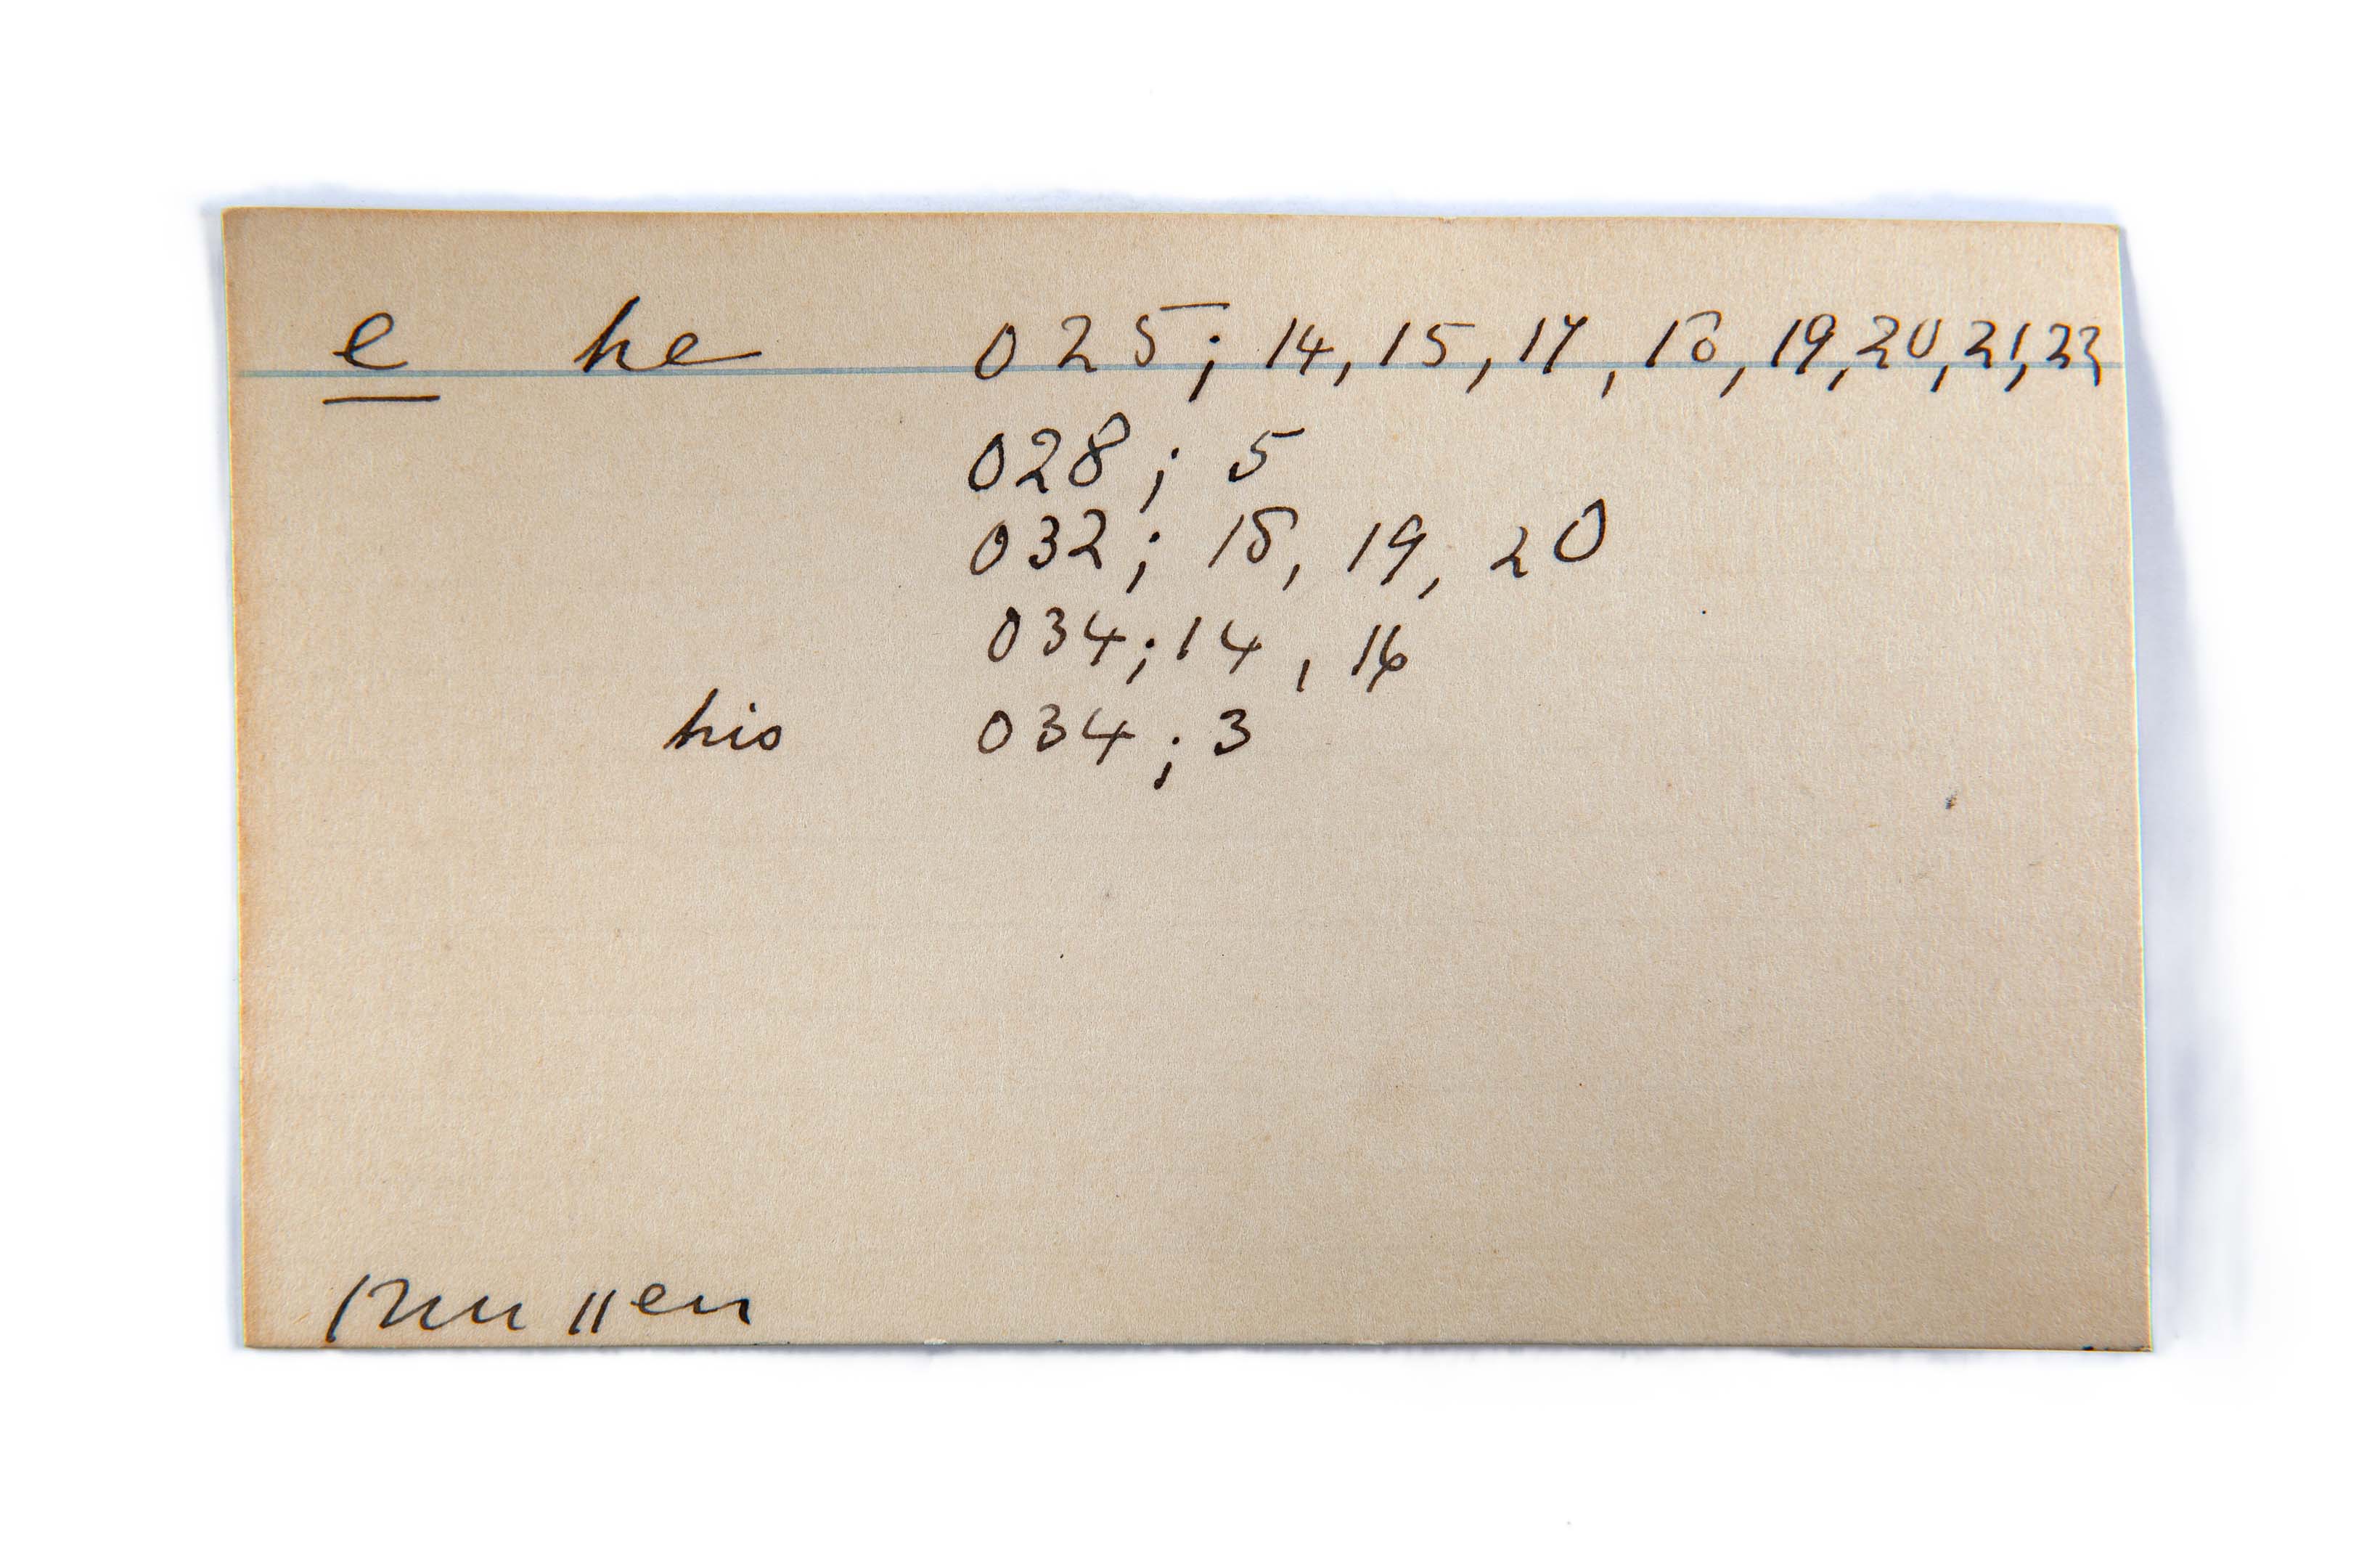 e he 025; 14, 15, 17, 18, 19, 20, 21, 22
028; 5
032; 18, 19, 20
034; 14, 16
his 034; 3